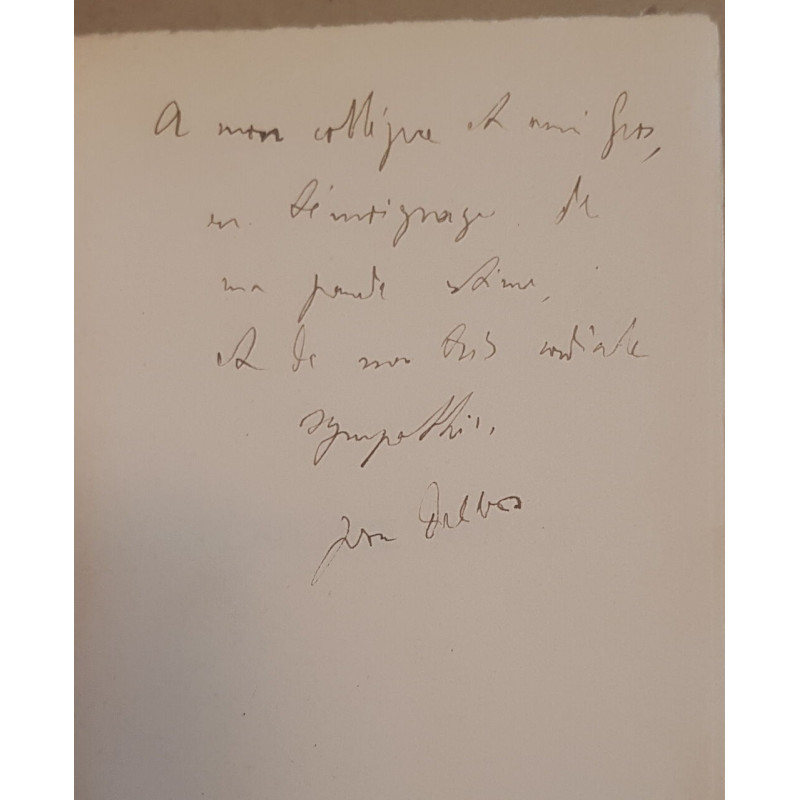 A mon collègue et ami Gros,
en témoignage de
ma grande estime,
et de ma très cordiale
sympathie.
Yvon Delbos